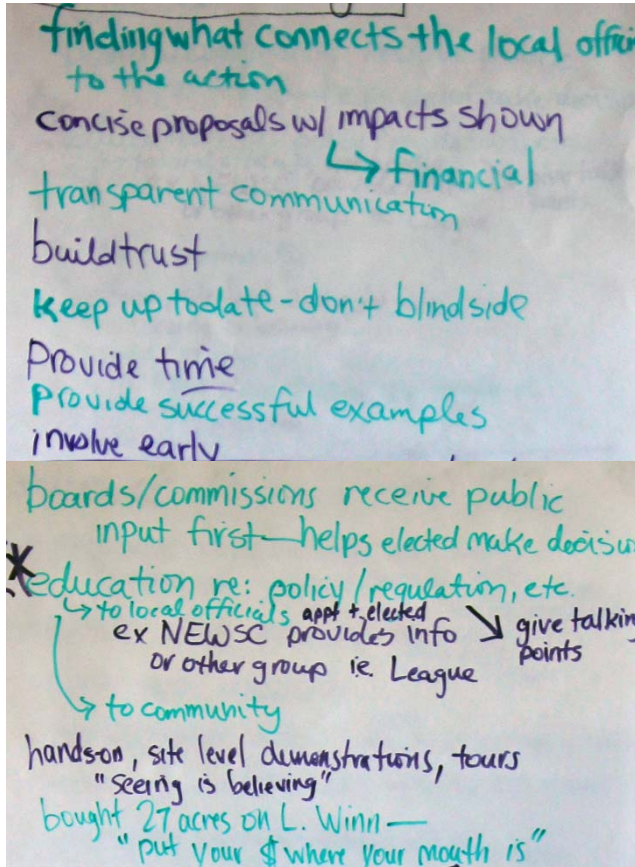 finding what connects the local offici
to the action
concise proposals w/ impacts shown
↳ financial
transparent communication
build trust
keep up to date - don't blindside
Provide time
Provide successful examples
involve early
boards/commissions receive public
input first - helps elected make decision
* education re: policy/regulation, etc.
↳ to local officials appt + elected
ex NEWSC provides info ↘ give talking
or other group i.e. League points
↳ to community
hands-on, site level demonstrations, tours
"seeing is believing"
bought 27 acres on L. Winn —
"put your $ where your mouth is"